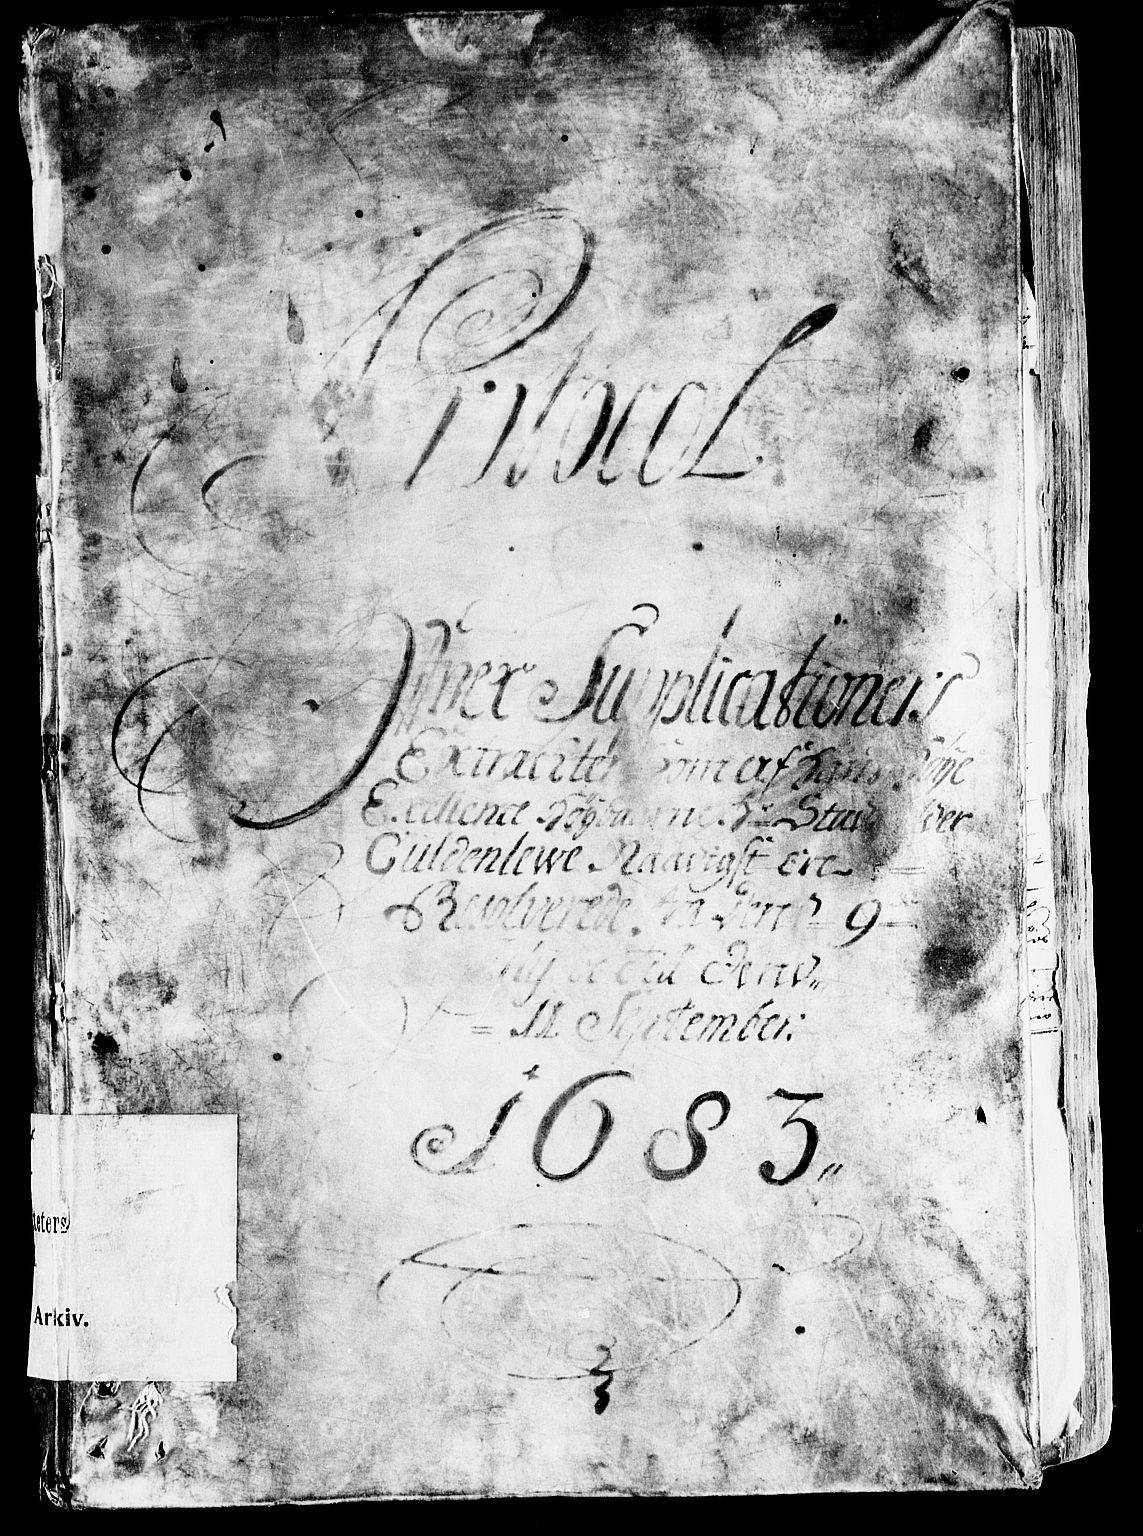 Protocol
Offver Supplicationers
Extracter som aff hans Høye
Excellence Høybaarne Hr Stadt
Güldenlewe Naadigst ere
Resolverede, fra denn 9
Julij. oc till denn
11 September.
1683
teters
Arkiv.